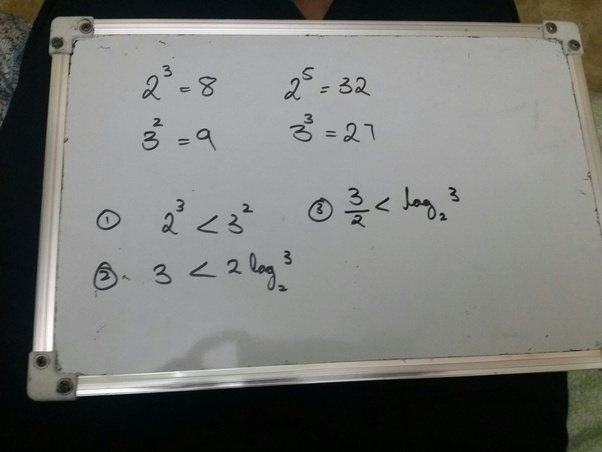 2³ = 8 2⁵ = 32
3² = 9 3³ = 27
① 2³ < 3² ③ 3/2 < log₂³
② 3 < 2 log₂³